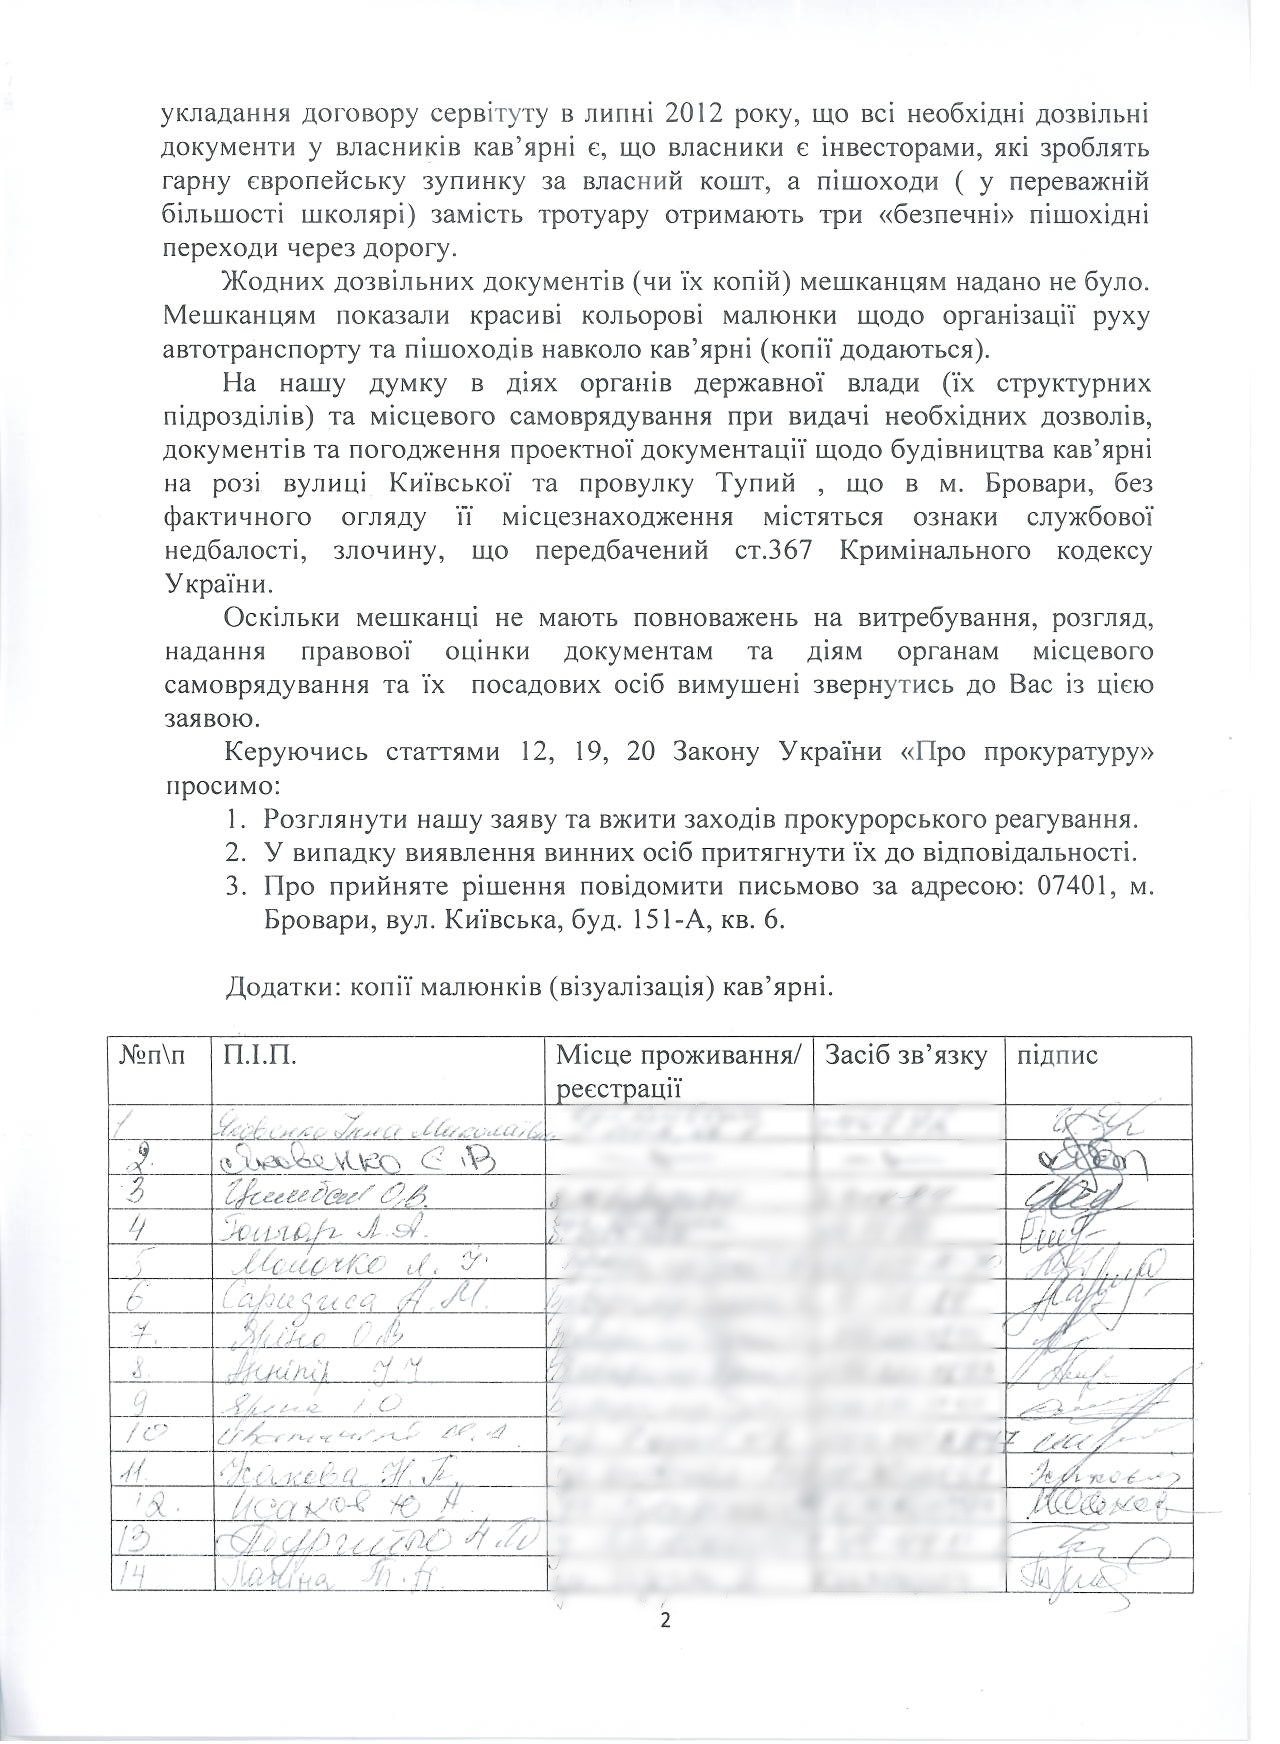 укладання договору сервітуту в липні 2012 року, що всі необхідні дозвільні
документи у власників кав’ярні є, що власники є інвесторами, які зроблять
гарну європейську зупинку за власний кошт, а пішоходи ( у переважній
більшості школярі) замість тротуару отримають три «безпечні» пішохідні
переходи через дорогу.
Жодних дозвільних документів (чи їх копій) мешканцям надано не було.
Мешканцям показали красиві кольорові малюнки щодо організації руху
автотранспорту та пішоходів навколо кав’ярні (копії додаються).
На нашу думку в діях органів державної влади (їх структурних
підрозділів) та місцевого самоврядування при видачі необхідних дозволів,
документів та погодження проектної документації щодо будівництва кав’ярні
на розі вулиці Київської та провулку Тупий , що в м. Бровари, без
фактичного огляду її місцезнаходження містяться ознаки службової
недбалості, злочину, що передбачений ст.367 Кримінального кодексу
України.
Оскільки мешканці не мають повноважень на витребування, розгляд,
надання правової оцінки документам та діям органам місцевого
самоврядування та їх посадових осіб вимушені звернутись до Вас із цією
заявою.
Керуючись статтями 12, 19, 20 Закону України «Про прокуратуру»
просимо:
1. Розглянути нашу заяву та вжити заходів прокурорського реагування.
2. У випадку виявлення винних осіб притягнути їх до відповідальності.
3. Про прийняте рішення повідомити письмово за адресою: 07401, м.
Бровари, вул. Київська, буд. 151-А, кв. 6.
Додатки: копії малюнків (візуалізація) кав’ярні.
№п\п П.І.П. Місце проживання/ Засіб зв’язку підпис
реєстрації
1 Яковенко Інна Миколаївна
2. Яковенко Є В
3 О.В.
4 Гончар Л.А.
5 Молочко Л.
6 А.М.
7. О.В
8.
9
10
11.
12. Исаков Ю А.
13
14 Т.
2